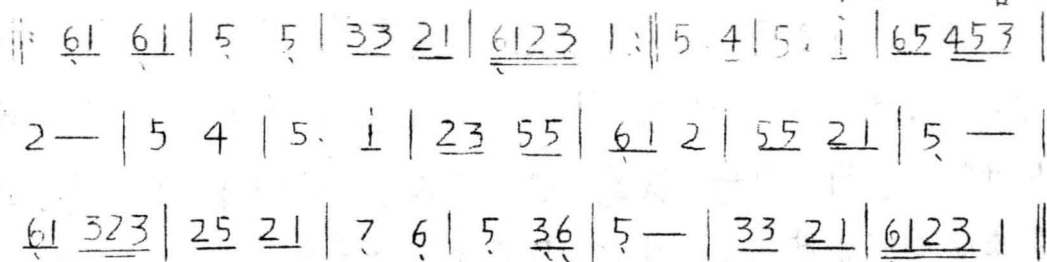 ‖: 6̣1 6̣1 | 5̣ 5̣ | 33 21 | 6̣123 1 :‖ 5 4 | 5. i̇ | 65 453 |
2 — | 5 4 | 5. i̇ | 23 55 | 6̣1 2 | 55 21 | 5̣ — |
6̣1 323 | 25 21 | 7̣ 6̣ | 5̣ 3̣6̣ | 5̣ — | 33 21 | 6̣123 1 ‖